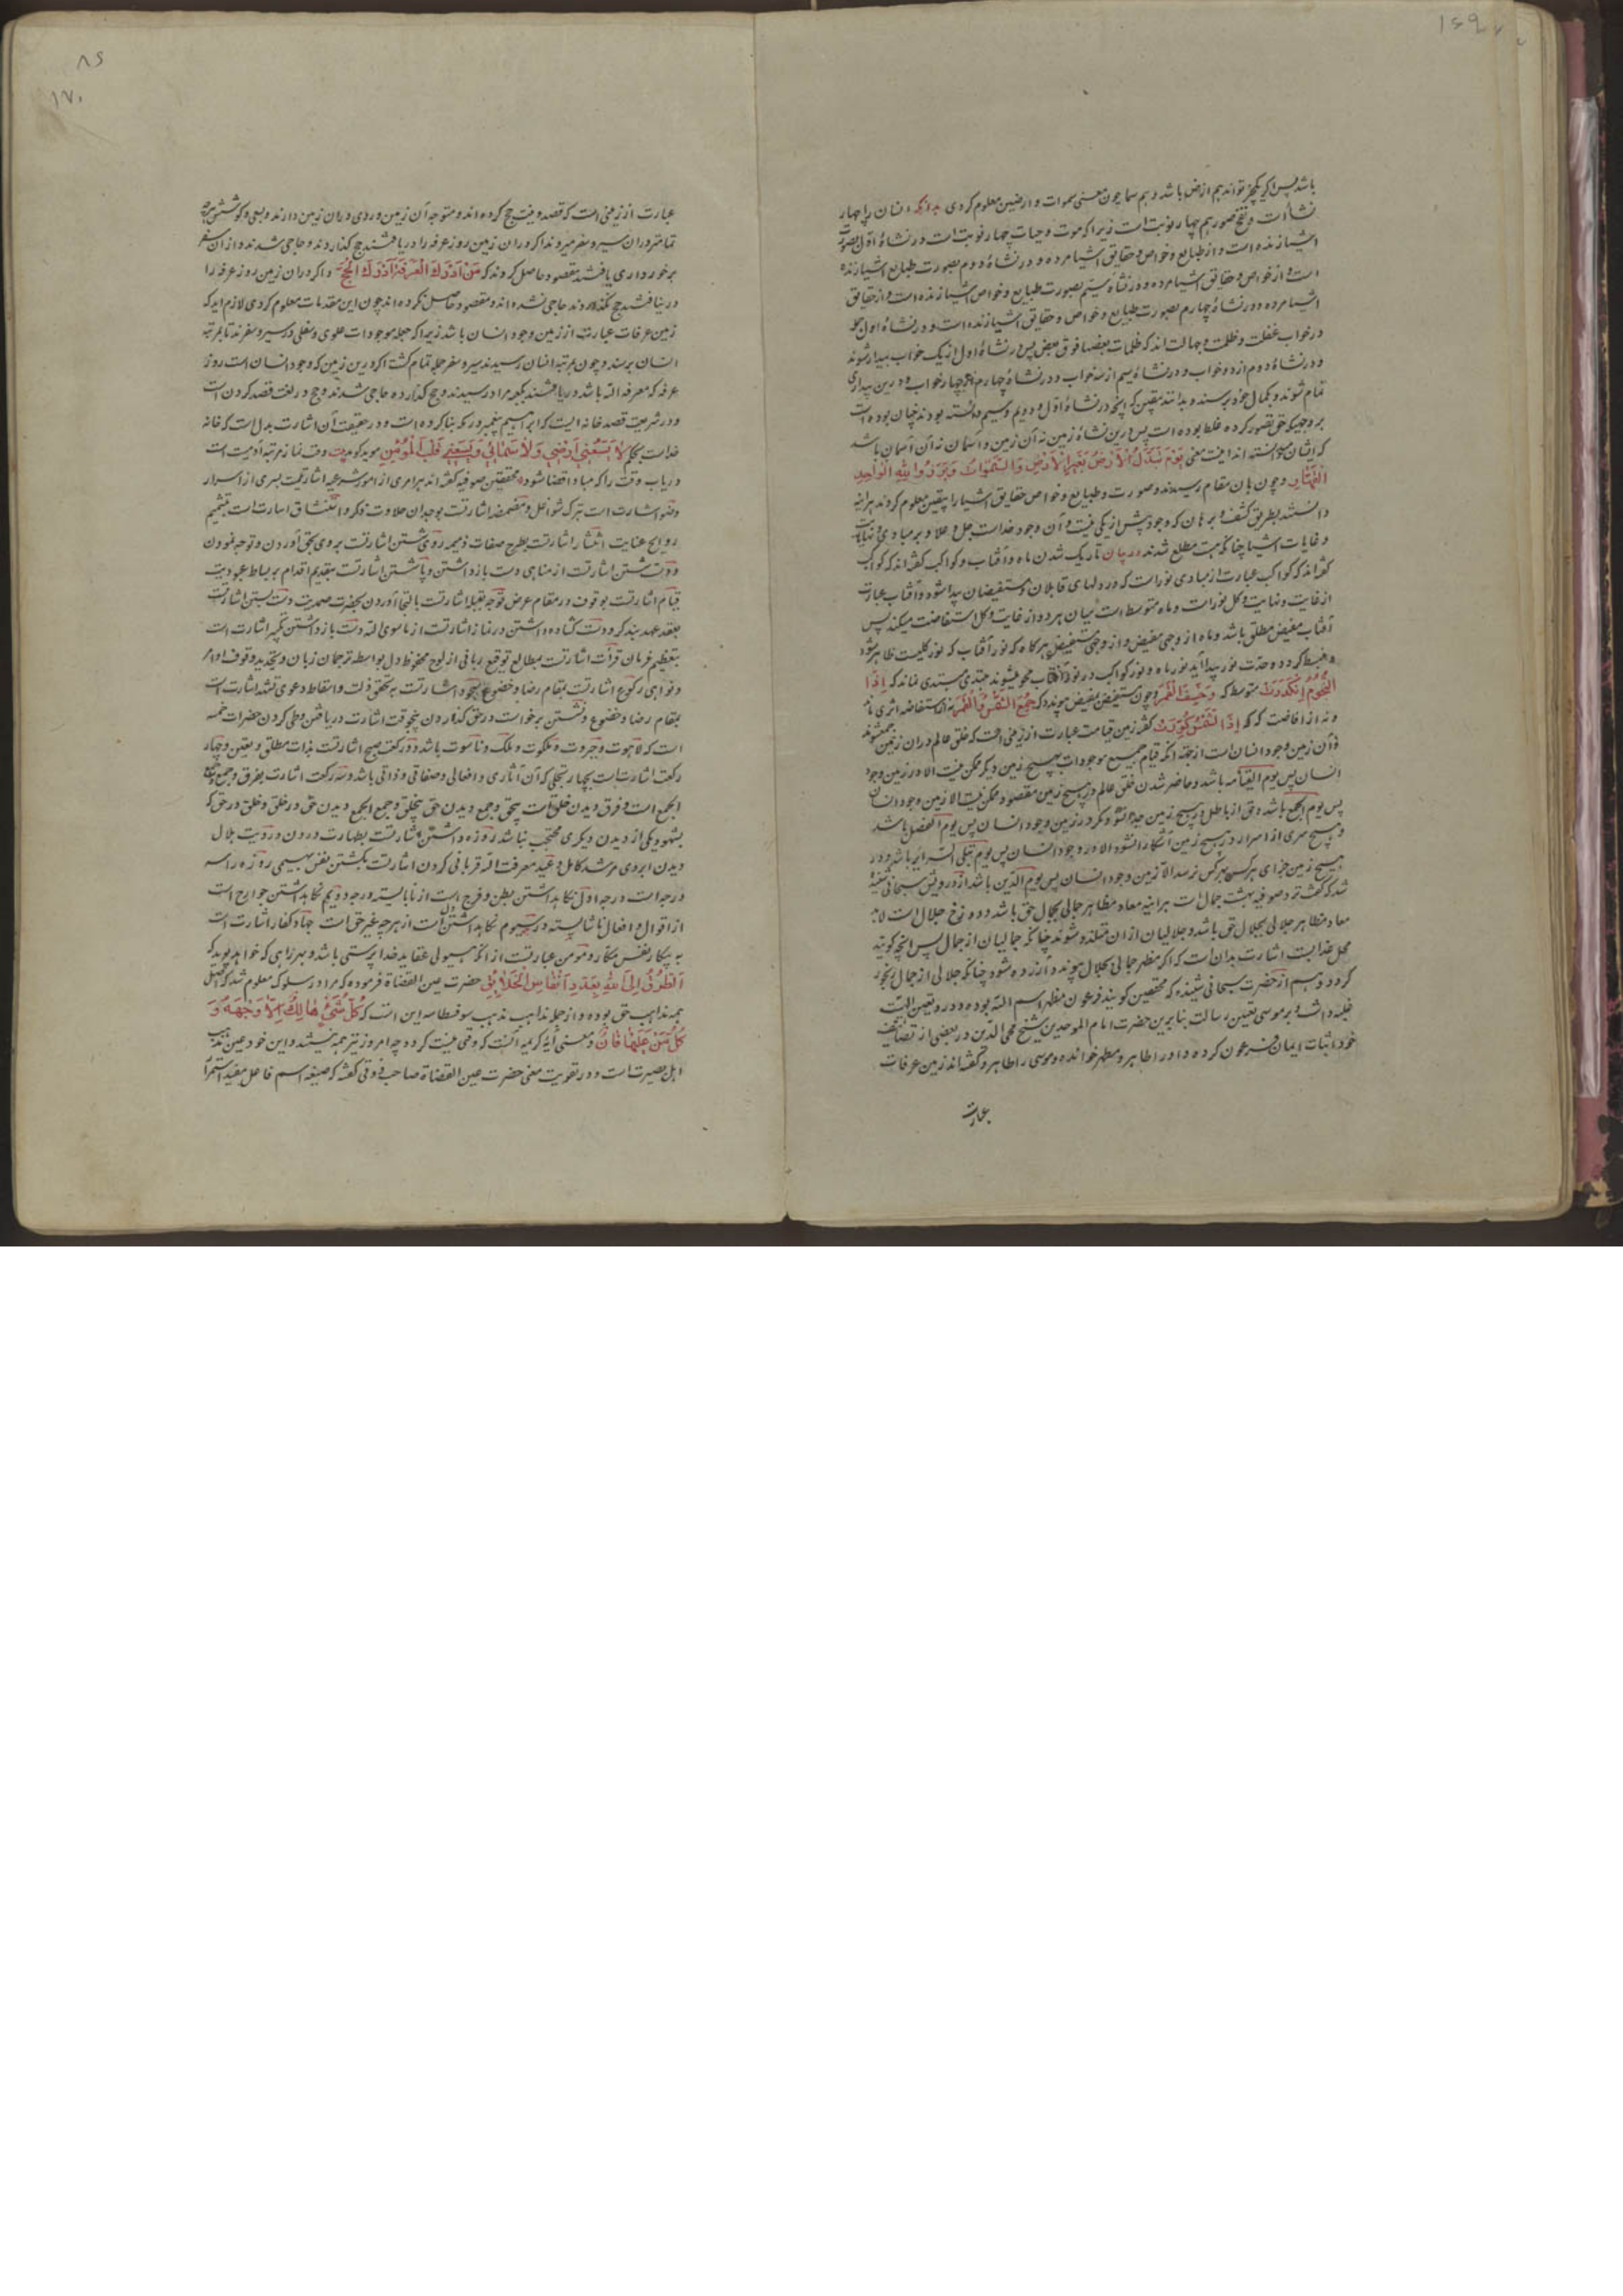 ۱۶۹
باشد پس اگر یکچیز تواند هم ارض باشد و هم سما چون معنی سموات و ارضین معلوم کردی بدانکه انسان را چهار
نشأات و نفخ صور هم چهار نوبت است زیرا که موت و حیات چهار نوبت است در نشاهٔ اول بصورت
اشیا زنده است و از طبایع و خواص و حقایق اشیا مرده و در نشاهٔ دوم بصورت و طبایع اشیا زنده
است و از خواص و حقایق اشیا مرده و در نشاه سیم بصورت و طبایع و خواص اشیا زنده است و از حقایق
اشیا مرده و در نشاهٔ چهارم بصورت و طبایع و خواص و حقایق اشیا زنده است و در نشاهٔ اول جمله
در خواب غفلت و ظلمت و جهالت اند که ظلمات بعضها فوق بعض پس در نشاهٔ اول از یک خواب بیدار شوند
و در نشاهٔ دوم از دو خواب و در نشاهٔ سیم از سه خواب و در نشاهٔ چهارم از چهار خواب و درین بیداری
تمام شوند و بکمال خود برسند و بدانند بیقین که آنچه در نشاهٔ اول و دویم و سیم دانسته بودند نچنان بوده است
بر وجهیکه حق تصور کرده غلط بوده است پس درین نشاهٔ زمین نه آن زمین و آسمان نه آن آسمان باشد
که ایشان میدانسته اند اینست معنی یَوْمَ تُبَدَّلُ الْاَرْضُ غَیْرَ الْاَرْضِ وَ السَّمٰوَاتُ وَ بَرَزُوا لِلّٰهِ الْوَاحِدِ
الْقَهَّارِ و چون بان مقام رسیدند و صورت و طبایع و خواص و حقایق اشیا را بیقین معلوم کردند هرآینه
دانستند بطریق کشف و برهان که وجود بیش از یکی نیست و آن وجود خداست جل و علا و بر مبادی و نهایات
و غایات اشیا چنانکه هست مطلع شدند در بیان تاریک شدن ماه و آفتاب و کواکب گفته اند که کواکب
گفته اند که کواکب عبارت از مبادی نور است که در دلهای قابلان و مستفیضان پیدا شود و آفتاب عبارت
از غایت و نهایت و کل نور است و ماه متوسط است میان هر دو از غایت و کل استفاضت میکند پس
آفتاب مفیض مطلق باشد و ماه از وجهی مفیض و از وجهی مستفیض هر گاه که نور آفتاب که نور کلیست ظاهر شود
و منبسط گردد و حدت نور پیدا آید نور ماه و نور کواکب در نور آفتاب محو میشوند مبتدی مبتدی نماند که اِذَا
النُّجُومُ انْکَدَرَتْ متوسط که وَخَسَفَ الْقَمَرُ و چون مستفیض بمفیض پیوندد که جُمِعَ الشَّمْسُ وَالْقَمَرُ نه از استفاضه اثری ماند
و نه از افاضت که که اِذَا الشَّمْسُ کُوِّرَتْ گفته زمین قیامت عبارت از زمینی است که خلق عالم در ان زمین جمع شوند
و آن زمین وجود انسان است از جهة آنکه قیام جمیع موجودات بهیچ زمین دیگر ممکن نیست الا در زمین وجود
انسان پس یوم القیامه باشد و حاضر شدن خلق عالم در هیچ زمین مقصود و ممکن نیست الا زمین وجود انسان
پس یوم الجمع باشد و حق از باطل در هیچ زمین جدا نشود مگر در زمین وجود انسان پس یوم الفصل باشد
و هیچ سری از اسرار در هیچ زمین آشکارا نشود الا در وجود انسان پس یوم تبلی السرایر باشد و در
هیچ زمین جزای هر کس بهر کس نرسد الا زمین وجود انسان پس یوم الدین باشد از درویش سبحانی شنیده
شد که گفت نزد صوفیه بهشت جمال است هرآینه معاد مظاهر جمالی بجمال حق باشد و دوزخ جلال است لابد
معاد مظاهر جلالی بجلال حق باشد و جلالیان از ان متلذذ شوند چنانکه جمالیان از جمال پس آنچه گویند
محل عذابست اشارت بدان است که اگر مظهر جمالی بجلال پیوندد آزرده شود چنانکه جلالی از جمال رنجور
گردد و هم از حضرت سبحانی شنیده که محققین گویند فرعون مظهر اسم الله بوده و در و تعین الهیت
غلبه داشت و بر موسی تعین رسالت بنابرین حضرت امام الموحدین شیخ محی الدین در بعضی از تصانیف
خود اثبات ایمان فرعون کرده و او را طاهر و مطهر خوانده و موسی را طاهر و گفته اند زمین عرفات
عبارت
۸۶
۱۷۰
عبارت از زمینی است که قصد و نیت حج کرده اند و متوجه آن زمین و روی در ان زمین دارند و بسعی و کوشش
تمامتر در ان سیر و سفر میروند اگر در ان زمین روز عرفه را دریافتند حج گذاردند و حاجی شدند و از ان سفر
برخورداری یافتند و مقصود حاصل کردند که مَنْ اَدْرَکَ الْعَرَفَةَ اَدْرَکَ الْحَجَّ و اگر در ان زمین روز عرفه را
در نیافتند حج نگذاردند حاجی نشده اند و مقصود حاصل نکرده اند چون این مقدمات معلوم کردی لازم آید که
زمین عرفات عبارت از زمین وجود انسان باشد زیرا که جمله موجودات علوی و سفلی در سیر و سفرند تا بمرتبه
انسان برسند و چون بمرتبه انسان رسیدند سیر و سفر جمله تمام گشت اگر درین زمین که وجود انسان است روز
عرفه که معرفة الله باشد دریافتند بکعبه مراد رسیدند و حج گذارده حاجی شدند و حج در لغت قصد کردن است
و در شریعت قصد خانه ایست که ابراهیم پیغمبر در مکه بنا کرده است و در حقیقت آن اشارت بدل است که خانه
خداست بحکم لَا یَسَعُنِی اَرْضِی وَ لَا سَمَائِی وَ یَسَعُنِی قَلْبُ الْمُؤْمِنِ موبد گوید وقت نماز مرتبه آدمیت است
دریاب وقت را که مبادا قضا شود محققین صوفیه گفته اند هر امری از امور شرعیه اشارتیست بسری از اسرار
وضو اشارت است بترک شواغل و مضمضه اشارتست بوجدان حلاوت ذکر و استنشاق اشارت است بتشمیم
روایح عنایت استنثار اشارتست بطرح صفات ذمیمه روی شستن اشارتست بروی بحق آوردن و توجه نمودن
و دست شستن اشارتست از مناهی دست باز داشتن و پا شستن اشارتست بتقدیم اقدام بر بساط عبودیت
قیام اشارتست بوقوف در مقام عرض توجه بقبله اشارتست بالتجا آوردن بحضرت صمدیت دست بستن اشارتست
بعقد عهد بندگی و دست گشاده داشتن در نماز اشارتست از ماسوی الله دست باز داشتن تکبیر اشارت است
بتعظیم فرمان قرأت اشارتست بمطالع توقیع ربانی از لوح محفوظ دل بواسطه ترجمان زبان و تجدید وقوف اوامر
و نواهی رکوع اشارتست بمقام رضا و خضوع سجود اشارتست به تحقق ذلت و اسقاط دعوی تشهد اشارت است
بمقام رضا و خضوع و نشستن برخواست در حق گذاردن پنجوقت اشارت دریافتن و طی کردن حضرات خمسه
است که لاهوت و جبروت و ملکوت و ملک و ناسوت باشد دو رکعت صبح اشارتست بذات مطلق و بعین و چهار
رکعت اشارتست بچهار تجلی که آن آثاری و افعالی و صفاتی و ذاتی باشد و سه رکعت اشارت بفرق و جمع و جمع
الجمع است و فرق دیدن خلق است بیحق و جمع دیدن حق بیخلق و جمع الجمع دیدن حق در خلق و خلق در حق که
بشهود یکی از دیدن دیگری محتجب نباشد روزه داشتن اشارتست بطهارت درون و رؤیت هلال
دیدن ابروی مرشد کامل و عید معرفت الله قربانی کردن اشارتست بکشتن نفس بهیمی روزه را سه
درجه است درجه اول نگاهداشتن بطن و فرج است از نابایسته درجه دویم نگاهداشتن جوارح است
از اقوال و افعال ناشایسته درجه سیوم نگاهداشتن دل است از هرچه غیر حق است جهاد کفار اشارت است
به پیکار نفس مکار و مؤمن عبارتست از انکه بهیولی عقاید خدا پرستی باشد و بهر راهی که خواهد پوید که
اَلطُّرُقُ اِلَی اللّٰهِ بِعَدَدِ اَنْفَاسِ الْخَلَایِقِ حضرت عین القضاة فرموده که مرا در سلوک معلوم شد که اصل
همه مذاهب حق بوده و از جمله مذاهب مذهب سوفسطائیه این است که کُلُّ شَیْءٍ هَالِکٌ اِلَّا وَجْهَهُ وَ
کُلُّ مَنْ عَلَیْهَا فَانٍ و معنی آیه کریمه آنست که وقتی نیست گردد چه امروز نیز همه نیستند و این خود عین مذهب
اهل بصیرت است و در تقویت معنی حضرت عین القضاة صاحب ذوقی گفته که صیغه اسم فاعل مفید استمرار